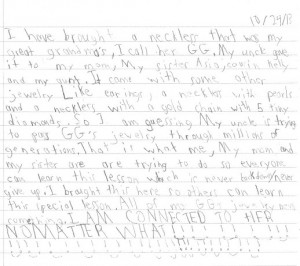 10/24/13
I have brought a neckless that was my
great grandma's, I call her GG. My uncle gave
it to my mom, My sister Asia, cousin holly
and my aunt. It came with some other
jewelry Like earings, a neckless with pearls
and a neckless with a gold chain with 5 tiny
diamonds. So I am guessing My uncle is trying
to pass GG's jewelry through millions of
generations. That is what me, My mom and
my sister are are trying to do so everyone
can learn this lesson which is never back down/never
give up. I brought this here so others can learn
this special lesson. All of my GG's jewelry has
I AM CONNECTED TO HER
NOMATTER WHAT!!!!!!!!!!!